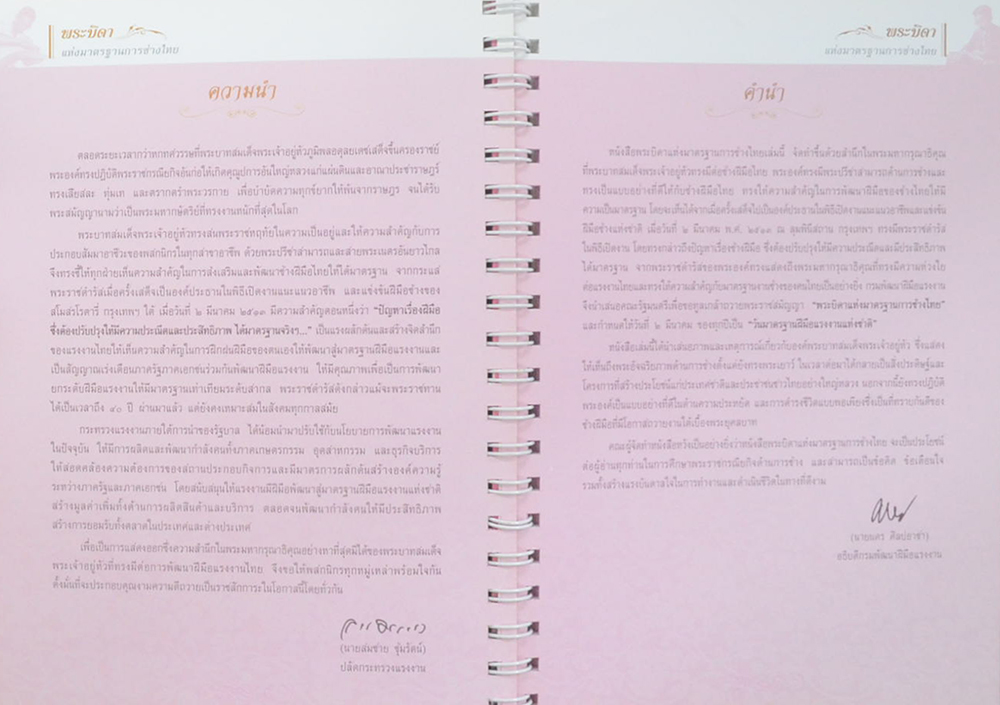 พระบิดา
แห่งมาตรฐานการช่างไทย
ความนำ
ตลอดระยะเวลากว่าหกทศวรรษที่พระบาทสมเด็จพระเจ้าอยู่หัวภูมิพลอดุลยเดชเสด็จขึ้นครองราชย์
พระองค์ทรงปฏิบัติพระราชกรณียกิจอันก่อให้เกิดคุณูปการอันใหญ่หลวงแก่แผ่นดินและอาณาประชาราษฎร์
ทรงเสียสละ ทุ่มเท และตรากตรำพระวรกาย เพื่อบำบัดความทุกข์ยากให้พ้นจากราษฎร จนได้รับ
พระสมัญญานามว่าเป็นพระมหากษัตริย์ที่ทรงงานหนักที่สุดในโลก
พระบาทสมเด็จพระเจ้าอยู่หัวทรงสนพระราชหฤทัยในความเป็นอยู่และให้ความสำคัญกับการ
ประกอบสัมมาอาชีวะของพสกนิกรในทุกสาขาอาชีพ ด้วยพระปรีชาสามารถและสายพระเนตรอันยาวไกล
จึงทรงชี้ให้ทุกฝ่ายเห็นความสำคัญในการส่งเสริมและพัฒนาช่างฝีมือไทยให้ได้มาตรฐาน จากกระแส
พระราชดำรัสเมื่อครั้งเสด็จเป็นองค์ประธานในพิธีเปิดงานแนะแนวอาชีพ และแข่งขันฝีมือช่างของ
สโมสรโรตารี่ กรุงเทพฯ ใต้ เมื่อวันที่ ๒ มีนาคม ๒๕๑๓ มีความสำคัญตอนหนึ่งว่า "ปัญหาเรื่องฝีมือ
ซึ่งต้องปรับปรุงให้มีความประณีตและประสิทธิภาพ ได้มาตรฐานจริงๆ..." เป็นแรงผลักดันและสร้างจิตสำนึก
ของแรงงานไทยให้เห็นความสำคัญในการฝึกฝนฝีมือของตนเองให้พัฒนาสู่มาตรฐานฝีมือแรงงานและ
เป็นสัญญาณเร่งเตือนภาครัฐภาคเอกชนร่วมกันพัฒนาฝีมือแรงงาน ให้มีคุณภาพเพื่อเป็นการพัฒนา
ยกระดับฝีมือแรงงานให้มีมาตรฐานเท่าเทียมระดับสากล พระราชดำรัสดังกล่าวแม้จะพระราชทาน
ได้เป็นเวลาถึง ๔๐ ปี ผ่านมาแล้ว แต่ยังคงเหมาะสมในสังคมทุกกาลสมัย
กระทรวงแรงงานภายใต้การนำของรัฐบาล ได้น้อมนำมาปรับใช้กับนโยบายการพัฒนาแรงงาน
ในปัจจุบัน ให้มีการผลิตและพัฒนากำลังคนทั้งภาคเกษตรกรรม อุตสาหกรรม และธุรกิจบริการ
ให้สอดคล้องความต้องการของสถานประกอบกิจการและมีมาตรการผลักดันสร้างองค์ความรู้
ระหว่างภาครัฐและภาคเอกชน โดยสนับสนุนให้แรงงานมีฝีมือพัฒนาสู่มาตรฐานฝีมือแรงงานแห่งชาติ
สร้างมูลค่าเพิ่มทั้งด้านการผลิตสินค้าและบริการ ตลอดจนพัฒนากำลังคนให้มีประสิทธิภาพ
สร้างการยอมรับทั้งตลาดในประเทศและต่างประเทศ
เพื่อเป็นการแสดงออกซึ่งความสำนึกในพระมหากรุณาธิคุณอย่างหาที่สุดมิได้ของพระบาทสมเด็จ
พระเจ้าอยู่หัวที่ทรงมีต่อการพัฒนาฝีมือแรงงานไทย จึงขอให้พสกนิกรทุกหมู่เหล่าพร้อมใจกัน
ตั้งมั่นที่จะประกอบคุณงามความดีถวายเป็นราชสักการะในโอกาสนี้โดยทั่วกัน
(นายสมชาย ชุ่มรัตน์)
ปลัดกระทรวงแรงงาน
พระบิดา
แห่งมาตรฐานการช่างไทย
คำนำ
หนังสือพระบิดาแห่งมาตรฐานการช่างไทยเล่มนี้ จัดทำขึ้นด้วยสำนึกในพระมหากรุณาธิคุณ
ที่พระบาทสมเด็จพระเจ้าอยู่หัวทรงมีต่อช่างฝีมือไทย พระองค์ทรงมีพระปรีชาสามารถด้านการช่างและ
ทรงเป็นแบบอย่างที่ดีให้กับช่างฝีมือไทย ทรงให้ความสำคัญในการพัฒนาฝีมือของช่างไทยให้มี
ความเป็นมาตรฐาน โดยจะเห็นได้จากเมื่อครั้งเสด็จไปเป็นองค์ประธานในพิธีเปิดงานแนะแนวอาชีพและแข่งขัน
ฝีมือช่างแห่งชาติ เมื่อวันที่ ๒ มีนาคม พ.ศ. ๒๕๑๓ ณ ลุมพินีสถาน กรุงเทพฯ ทรงมีพระราชดำรัส
ในพิธีเปิดงาน โดยทรงกล่าวถึงปัญหาเรื่องช่างฝีมือ ซึ่งต้องปรับปรุงให้มีความประณีตและมีประสิทธิภาพ
ได้มาตรฐาน จากพระราชดำรัสของพระองค์ทรงแสดงถึงพระมหากรุณาธิคุณที่ทรงมีความห่วงใย
ต่อแรงงานไทยและทรงให้ความสำคัญกับมาตรฐานงานช่างของคนไทยเป็นอย่างยิ่ง กรมพัฒนาฝีมือแรงงาน
จึงนำเสนอคณะรัฐมนตรีเพื่อขอทูลเกล้าถวายพระราชสมัญญา "พระบิดาแห่งมาตรฐานการช่างไทย"
และกำหนดให้วันที่ ๒ มีนาคม ของทุกปีเป็น "วันมาตรฐานฝีมือแรงงานแห่งชาติ"
หนังสือเล่มนี้ได้นำเสนอภาพและเหตุการณ์เกี่ยวกับองค์พระบาทสมเด็จพระเจ้าอยู่หัว ซึ่งแสดง
ให้เห็นถึงพระอัจฉริยภาพด้านการช่างตั้งแต่ยังทรงพระเยาว์ ในเวลาต่อมาได้กลายเป็นสิ่งประดิษฐ์และ
โครงการที่สร้างประโยชน์แก่ประเทศชาติและประชาชนชาวไทยอย่างใหญ่หลวง นอกจากนี้ยังทรงปฏิบัติ
พระองค์เป็นแบบอย่างที่ดีในด้านความประหยัด และการดำรงชีวิตแบบพอเพียงซึ่งเป็นที่ทราบกันดีของ
ช่างฝีมือที่มีโอกาสถวายงานใต้เบื้องพระยุคลบาท
คณะผู้จัดทำหนังสือหวังเป็นอย่างยิ่งว่าหนังสือพระบิดาแห่งมาตรฐานการช่างไทย จะเป็นประโยชน์
ต่อผู้อ่านทุกท่านในการศึกษาพระราชกรณียกิจด้านการช่าง และสามารถเป็นข้อคิด ข้อเตือนใจ
รวมทั้งสร้างแรงบันดาลใจในการทำงานและดำเนินชีวิตในทางที่ดีงาม
(นายนคร ศิลปอาชา)
อธิบดีกรมพัฒนาฝีมือแรงงาน